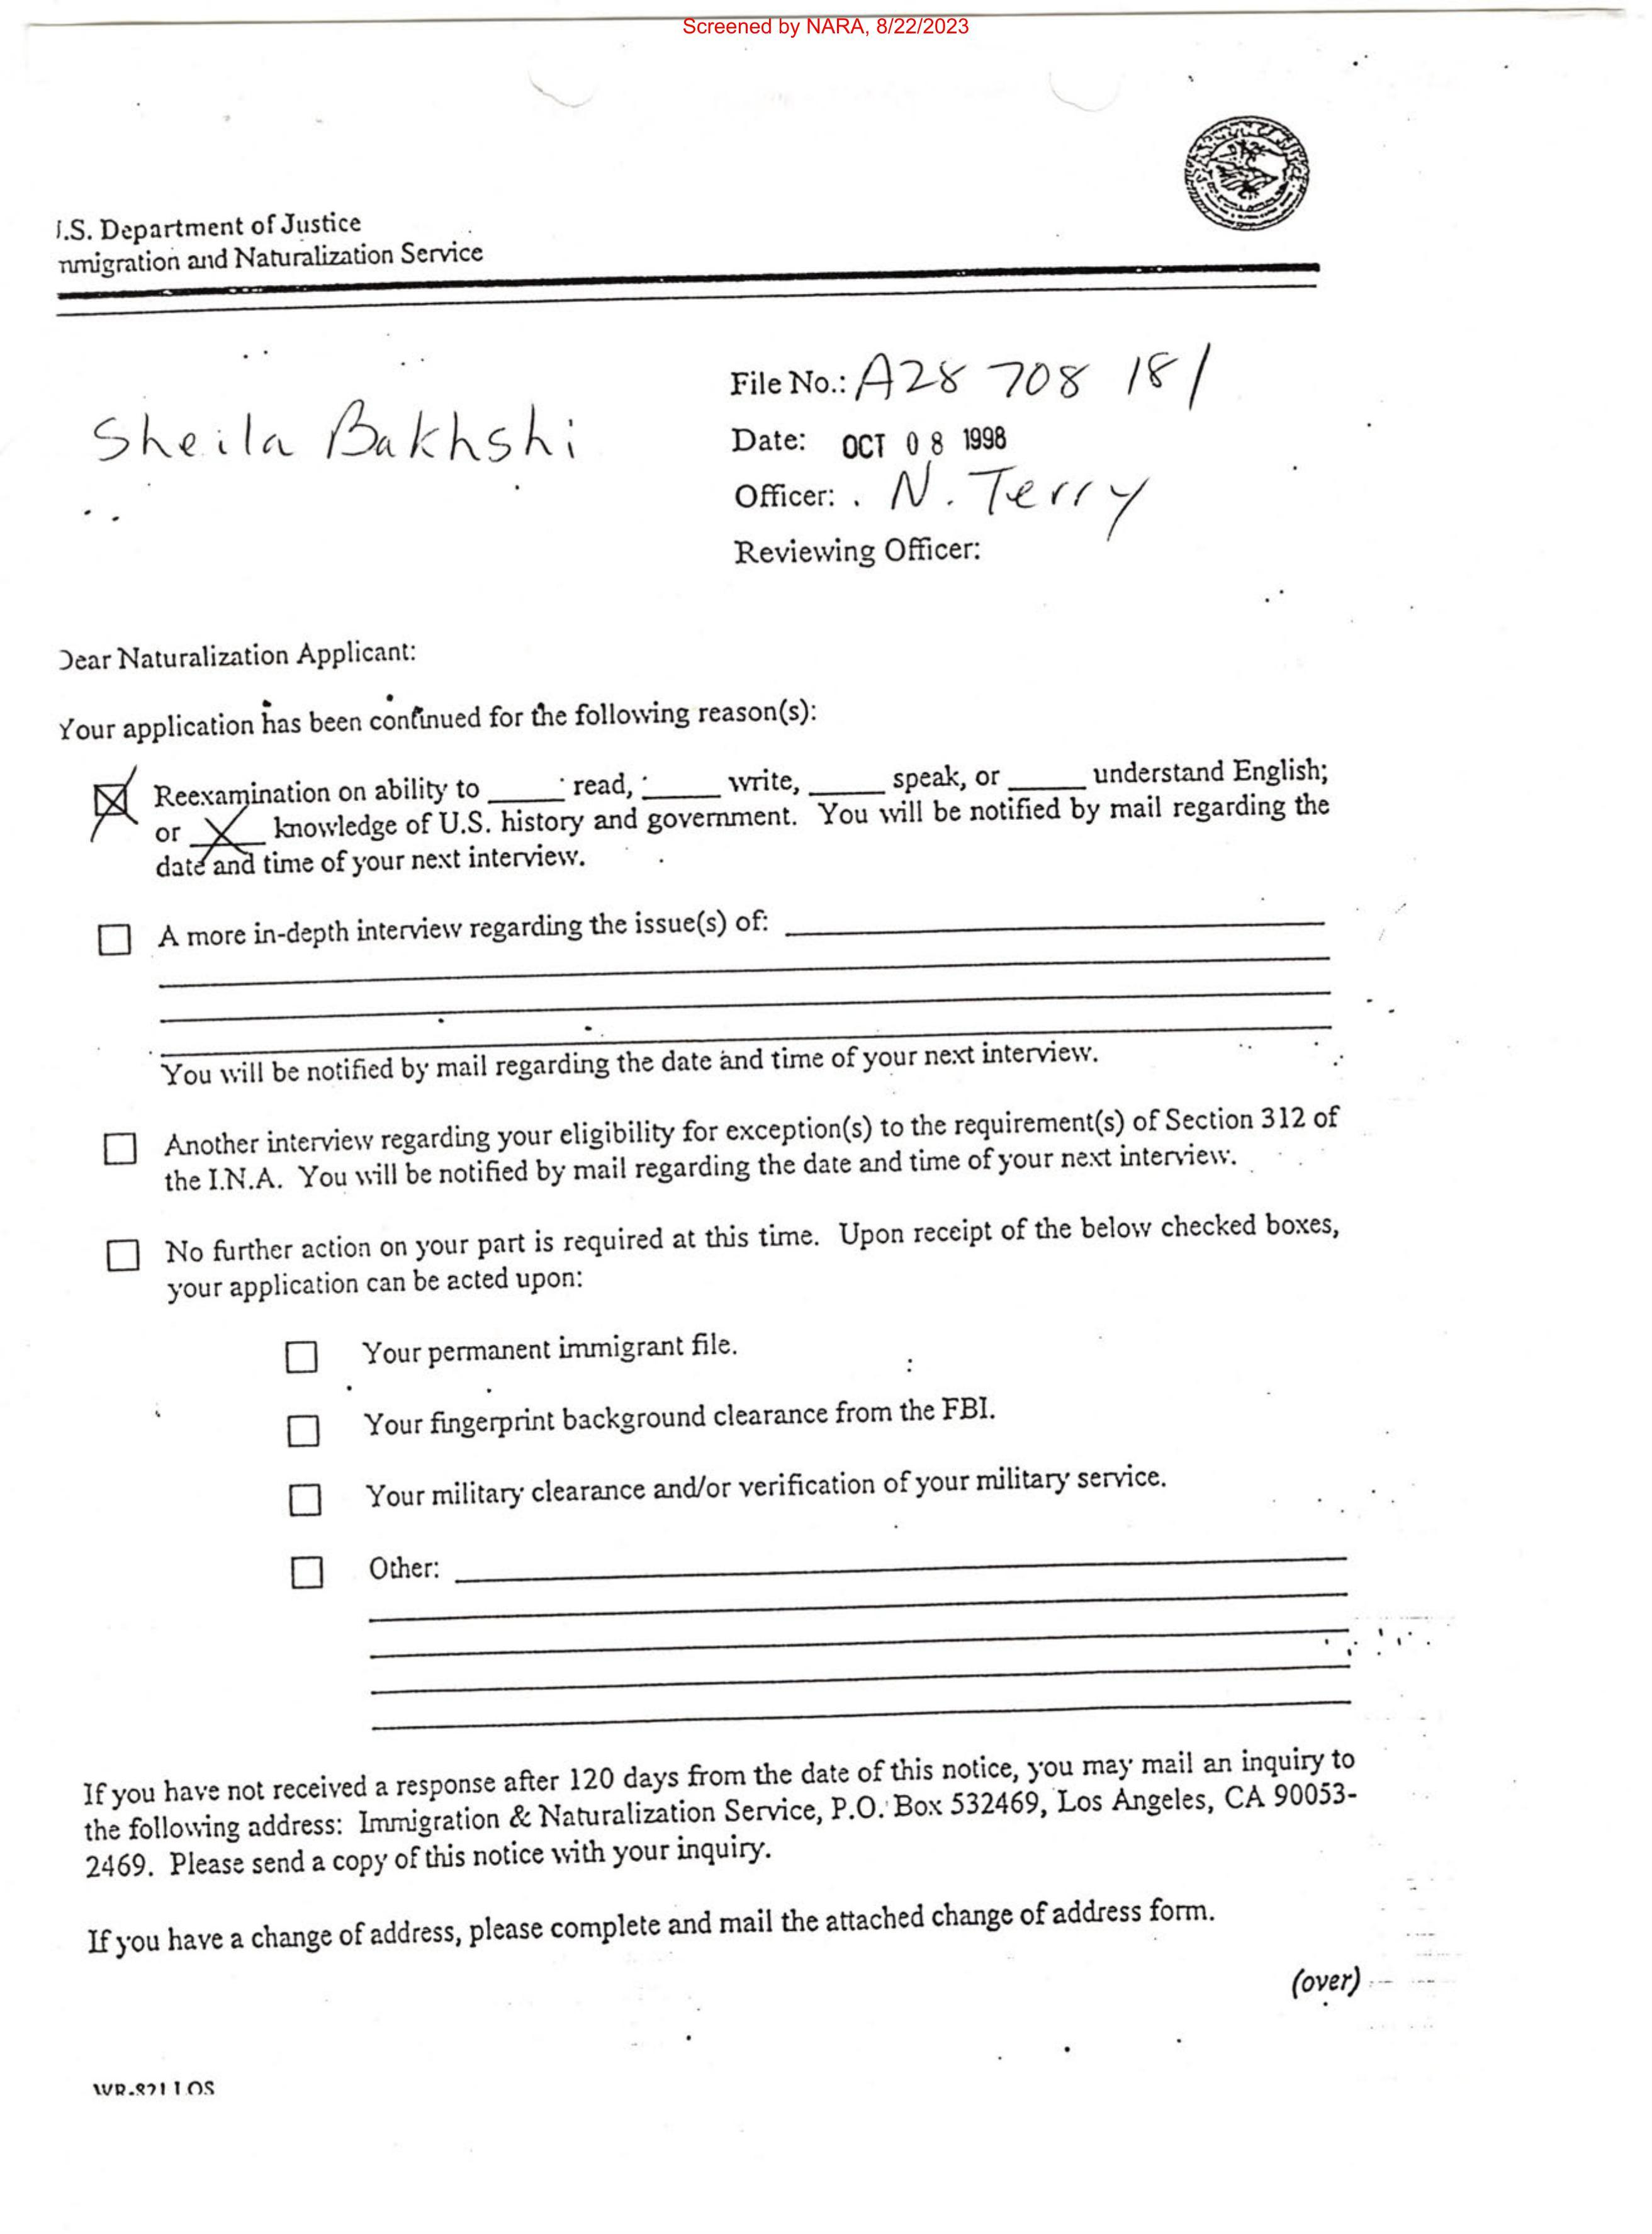 Screened by NARA, 8/22/2023
.S. Department of Justice
mmigration and Naturalization Service
Sheila Bakhshi
File No.: A28 708 181
Date: OCT 08 1998
Officer: N. Terry
Reviewing Officer:
Dear Naturalization Applicant:
Your application has been continued for the following reason(s):
Reexamination on ability to _____ read, _____ write, _____ speak, or _____ understand English;
or __X__ knowledge of U.S. history and government. You will be notified by mail regarding the
date and time of your next interview.
A more in-depth interview regarding the issue(s) of:
You will be notified by mail regarding the date and time of your next interview.
Another interview regarding your eligibility for exception(s) to the requirement(s) of Section 312 of
the I.N.A. You will be notified by mail regarding the date and time of your next interview.
No further action on your part is required at this time. Upon receipt of the below checked boxes,
your application can be acted upon:
Your permanent immigrant file.
Your fingerprint background clearance from the FBI.
Your military clearance and/or verification of your military service.
Other:
If you have not received a response after 120 days from the date of this notice, you may mail an inquiry to
the following address: Immigration & Naturalization Service, P.O. Box 532469, Los Angeles, CA 90053-
2469. Please send a copy of this notice with your inquiry.
If you have a change of address, please complete and mail the attached change of address form.
(over)
WR-821 LOS